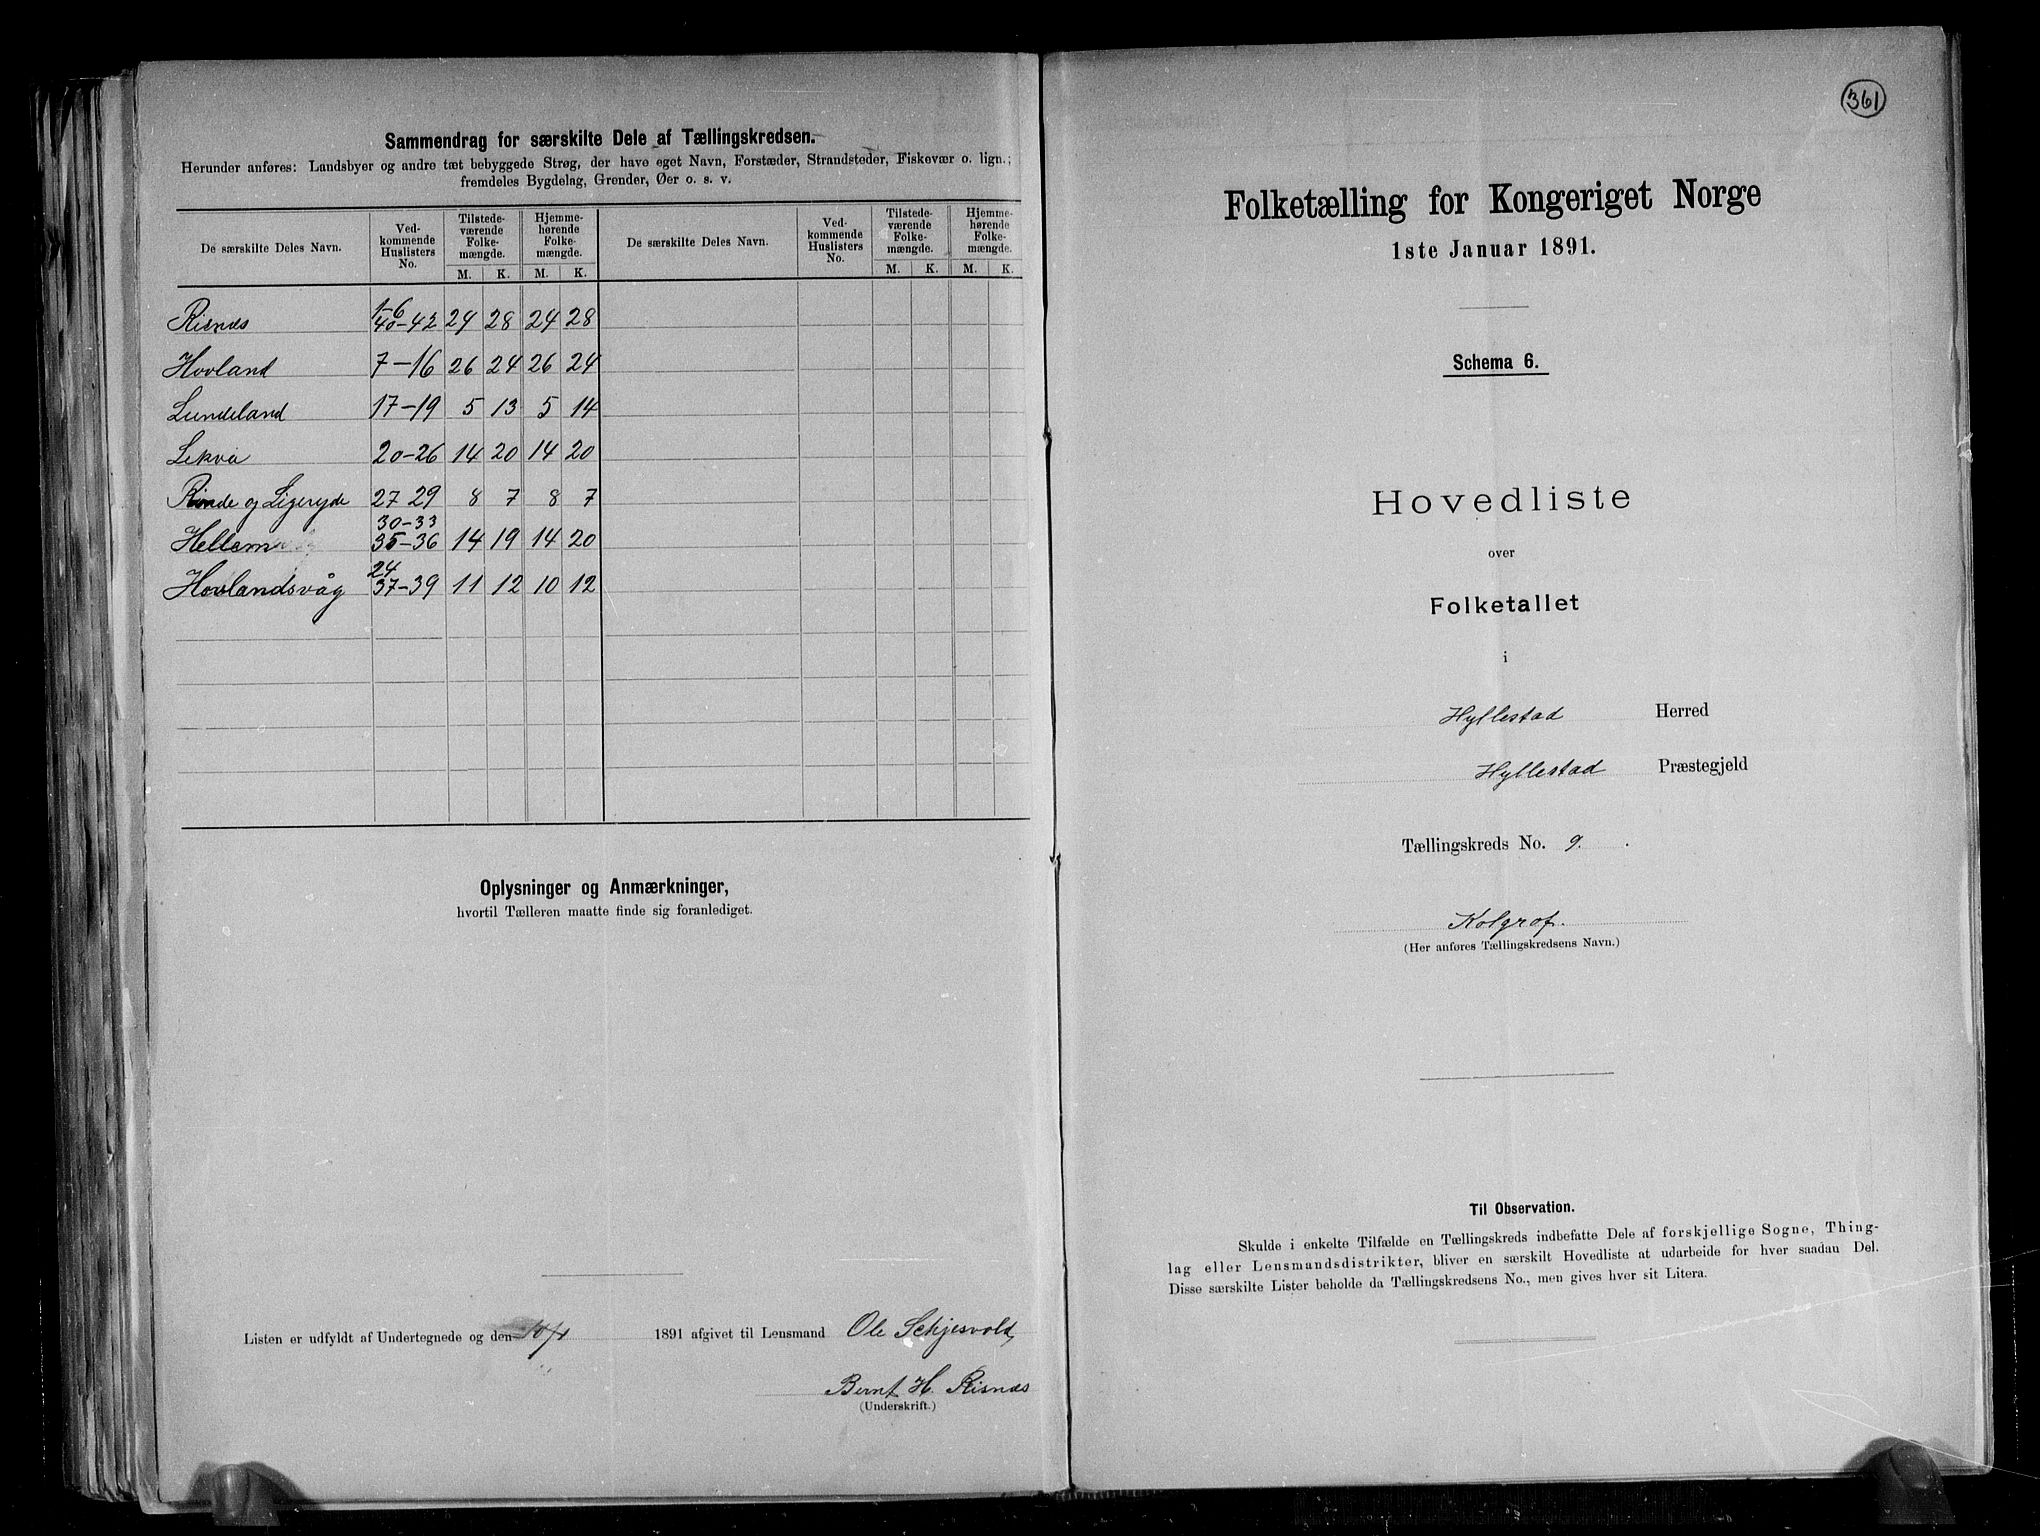 Sammendrag for særskilte Dele af Tællingskredsen.
Herunder anføres: Landsbyer og andre tæt bebyggede Strøg, der have eget Navn, Forstæder, Strandsteder, Fiskevær o. lign.;
fremdeles Bygdelag, Grender, Øer o. s. v.
De særskilte Deles Navn. Ved-kommende Huslisters No. Tilstede-værende Folke-mængde. Hjemme-hørende Folke-mængde. De særskilte Deles Navn. Ved-kommende Huslisters No. Tilstede-værende Folke-mængde. Hjemme-hørende Folke-mængde.
M. K. M. K. M. K. M. K.
1-6
Risnæs 40-42 24 28 24 28
Hovland 7-16 26 24 26 24
Lundeland 17-19 5 13 5 14
Lekva 20-26 14 20 14 20
Rinde og Ligeryde 27 29 8 7 8 7
30-33
Hellem 35-36 14 19 14 20
24
Hovlandsvåg 37-39 11 12 10 12
Oplysninger og Anmærkninger,
hvortil Tælleren maatte finde sig foranlediget.
Listen er udfyldt af Undertegnede og den 10/1 1891 afgivet til Lensmand Ole Schjesvold,
Bernt H. Risnæs
(Underskrift.)
361
Folketælling for Kongeriget Norge
1ste Januar 1891.
Schema 6.
Hovedliste
over
Folketallet
i
Hyllestad Herred
Hyllestad Præstegjeld
Tællingskreds No. 9.
Kolgrof.
(Her anføres Tællingskredsens Navn.)
Til Observation.
Skulde i enkelte Tilfælde en Tællingskreds indbefatte Dele af forskjellige Sogne, Thing-
lag eller Lensmandsdistrikter, bliver en særskilt Hovedliste at udarbeide for hver saadan Del.
Disse særskilte Lister beholde da Tællingskredsens No., men gives hver sit Litera.